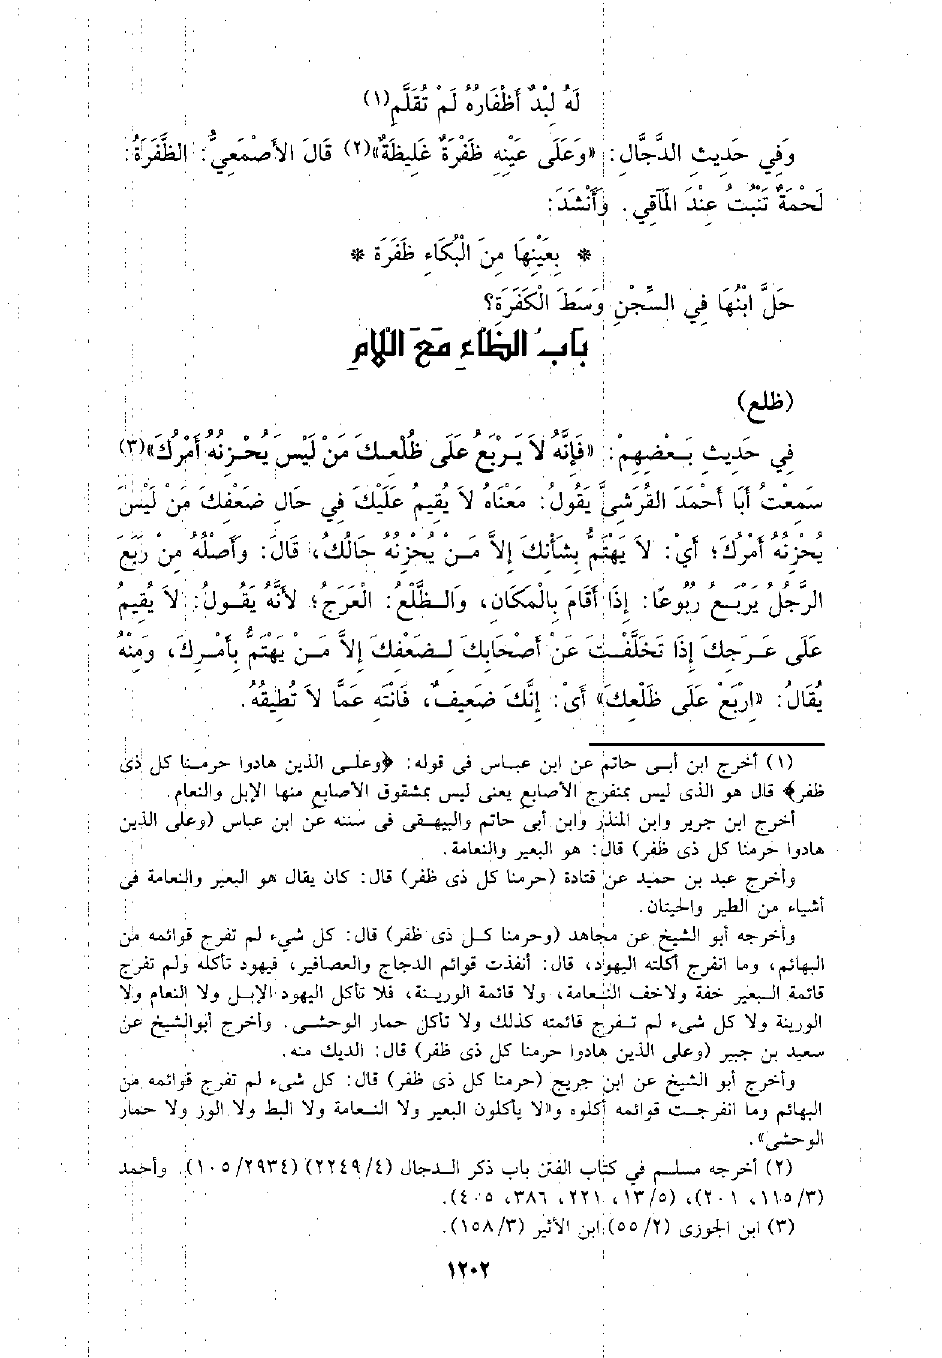 لَهُ لِبْدٌ أَظْفَارُهُ لَمْ تُقَلَّمِ(١)
وَفِي حَدِيثِ الدَّجَّالِ: «وَعَلَى عَيْنِهِ ظَفْرَةٌ غَلِيظَةٌ»(٢) قَالَ الأَصْمَعِيُّ: الظَّفَرَةُ:
لَحْمَةٌ تَنْبُتُ عِنْدَ المَآقِي. وَأَنْشَدَ:
* بِعَيْنِهَا مِنَ الْبُكَاءِ ظَفَرَة *
حَلَّ ابْنُهَا فِي السِّجْنِ وَسَطَ الْكَفَرَة؟
بَابُ الظَّاءِ مَعَ اللَّامِ
(ظلع)
فِي حَدِيثِ بَعْضِهِمْ: «فَإِنَّهُ لاَ يَرْبَعُ عَلَى ظُلْعِكَ مَنْ لَيْسَ يَحْزِنُهُ أَمْرُكَ»(٣)
سَمِعْتُ أَبَا أَحْمَدَ القُرَشِيَّ يَقُولُ: مَعْنَاهُ لاَ يُقِيمُ عَلَيْكَ فِي حَالِ ضَعْفِكَ مَنْ لَيْسَ
يُحْزِنُهُ أَمْرُكَ؛ أَيْ: لاَ يَهْتَمُّ بِشَأْنِكَ إِلاَّ مَنْ يُحْزِنُهُ حَالُكَ، قَالَ: وَأَصْلُهُ مِنْ رَبَعَ
الرَّجُلُ يَرْبَعُ رُبُوعًا: إِذَا أَقَامَ بِالْمَكَانِ، وَالظَّلْعُ: الْعَرَجُ؛ لأَنَّهُ يَقُولُ: لاَ يُقِيمُ
عَلَى عَرَجِكَ إِذَا تَخَلَّفْتَ عَنْ أَصْحَابِكَ لِضَعْفِكَ إِلاَّ مَنْ يَهْتَمُّ بِأَمْرِكَ، وَمِنْهُ
يُقَالُ: «اِرْبَعْ عَلَى ظَلْعِكَ» أَىْ: إِنَّكَ ضَعِيفٌ، فَانْتَهِ عَمَّا لاَ تُطِيقُهُ.
(١) أخرج ابن أبى حاتم عن ابن عباس فى قوله: ﴿وعلى الذين هادوا حرمنا كل ذى
ظفر﴾ قال هو الذى ليس بمنفرج الأصابع يعنى ليس بمشقوق الأصابع منها الإبل والنعام.
أخرج ابن جرير وابن المنذر وابن أبى حاتم والبيهقى فى سننه عن ابن عباس (وعلى الذين
هادوا حرمنا كل ذى ظفر) قال: هو البعير والنعامة.
وأخرج عبد بن حميد عن قتادة (حرمنا كل ذى ظفر) قال: كان يقال هو البعير والنعامة فى
أشياء من الطير والحيتان.
وأخرجه أبو الشيخ عن مجاهد (وحرمنا كل ذى ظفر) قال: كل شيء لم تفرج قوائمه من
البهائم، وما انفرج أكلته اليهود، قال: أنفذت قوائم الدجاج والعصافير، فيهود تأكله ولم تفرج
قائمة البعير خفة ولاخف النعامة، ولا قائمة الورينة، فلا تأكل اليهود الإبل ولا النعام ولا
الورينة ولا كل شىء لم تفرج قائمته كذلك ولا تأكل حمار الوحشى. وأخرج أبوالشيخ عن
سعيد بن جبير (وعلى الذين هادوا حرمنا كل ذى ظفر) قال: الديك منه.
وأخرج أبو الشيخ عن ابن جريج (حرمنا كل ذى ظفر) قال: كل شىء لم تفرج قوائمه من
البهائم وما انفرجت قوائمه أكلوه و«لا يأكلون البعير ولا النعامة ولا البط ولا الوز ولا حمار
الوحشى».
(٢) أخرجه مسلم في كتاب الفتن باب ذكر الدجال (٢٢٤٩/٤) (١٠٥/٢٩٣٤). وأحمد
(١١٥/٣، ٢٠١)، (١٣/٥، ٢٢١، ٣٨٦، ٤٠٥).
(٣) ابن الجوزى (٥٥/٢) ابن الأثير (١٥٨/٣).
١٢٠٢